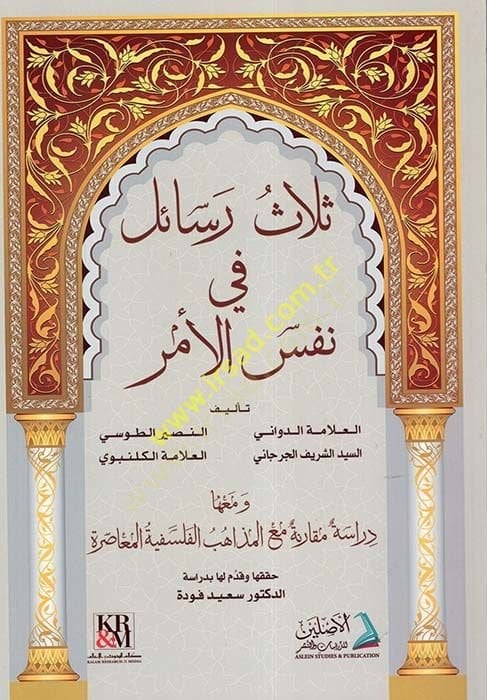 ثلاثُ رسائل
في
نفس الأمر
تأليف
العلامة الدواني النصير الطوسي
السيد الشريف الجرجاني العلامة الكلنبوي
ومعها
دراسة مقارنة مع المذاهب الفلسفية المعاصرة
حققها وقدّم لها بدراسة
الدكتور سعيد فودة
www.irsad.com.tr
KR&M
KALAM RESEARCH & MEDIA
الأصلين
للدراسات والنشر
ASLEIN STUDIES & PUBLICATION